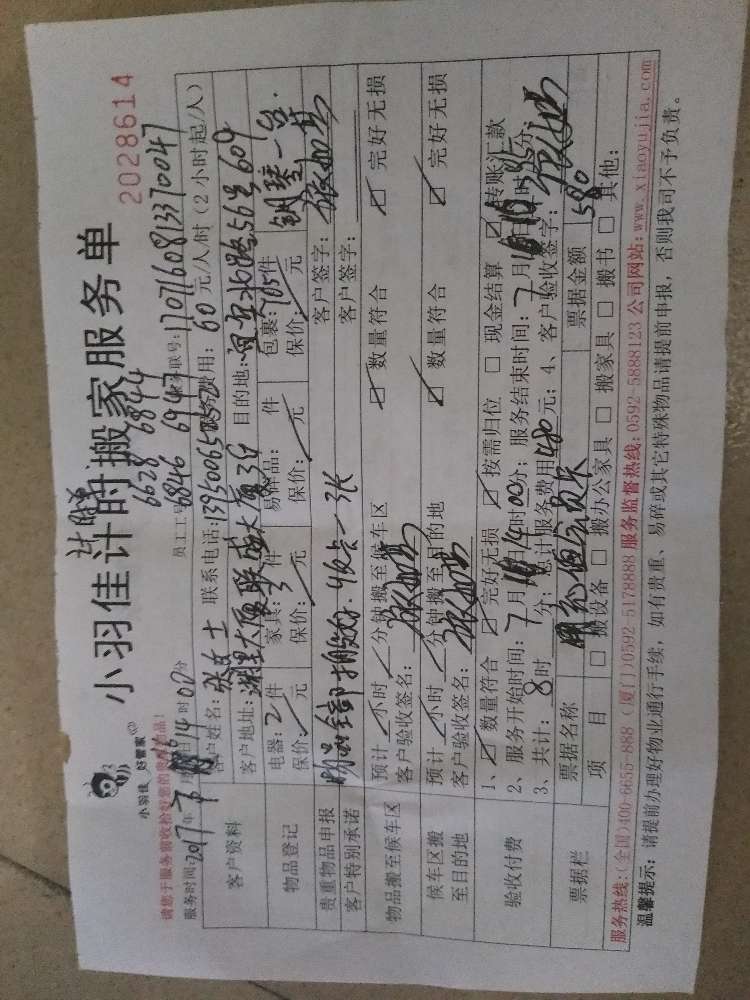 小羽佳 好管家
小羽佳计时搬家服务单
2028614
计时单
6628 6844
6846 6947
请您于服务前收拾好您的贵重物品！
服务时间:2017年7月 日14时00分
员工工号
联号:1707160813370047
客户资料
客户姓名:张女士 联系电话:
费用:60元/人/时(2小时起/人)
客户地址: 大厦联成大厦3G 目的地: 路56号609
物品登记
电器:2件 家具:3件 易碎品: 件 包裹:105件
钢琴一台
保价: 元 保价: 元 保价: 元 保价: 元
贵重物品申报
物品全部搬完好.收点一张
客户签字:
客户特别承诺
客户签字:
物品搬至候车区
预计 小时 分钟搬至候车区 数量符合 完好无损
客户验收签名:
候车区搬至目的地
预计 小时 分钟搬至目的地 数量符合 完好无损
客户验收签名:
验收付费
1、数量符合 完好无损 按需归位 现金结算 转账汇款
2、服务开始时间:7月 日14时00分;服务结束时间:7月 日 时 分;
3、共计:8时 分;总计服务费用480元;4、客户验收签字:
票据栏
票据名称 用充值会员卡 票据金额 580
项目 搬设备 搬办公家具 搬家具 搬书 其他:
服务热线:(全国)400-6655-888 (厦门)0592-5178888 服务监督热线:0592-5888123 公司网站:www.xiaoyujia.com
温馨提示:请提前办理好物业通行手续，如有贵重、易碎或其它特殊物品请提前申报，否则我司不予负责。